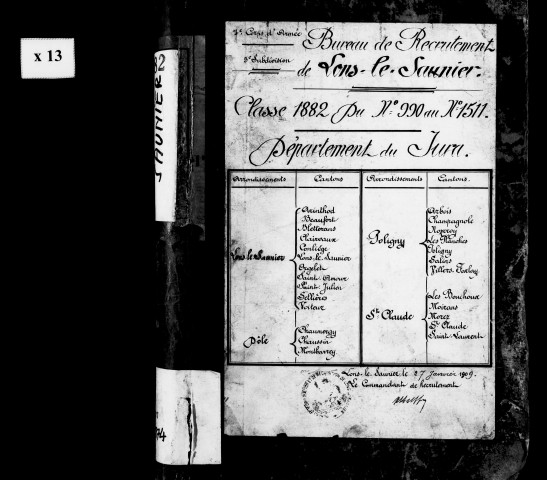 x 13
82
SAUNIER
7e Corps d'Armée
3e Subdivision
Bureau de Recrutement
de Lons-le-Saunier.
Classe 1882 Du No 990 au No 1511.
Département du Jura.
Arrondissements Cantons Arrondissements Cantons
Lons le Saunier
Arinthod
Beaufort
Bletterans
Clairvaux
Conliège
Lons-le-Saunier
Orgelet
Saint-Amour
Saint-Julien
Sellières
Voiteur
Dôle
Chaumergy
Chaussin
Montbarrey
Poligny
Arbois
Champagnole
Nozeroy
Les Planches
Poligny
Salins
Villers-Farlay
St Claude
Les Bouchoux
Moirans
Morez
St Claude
Saint-Laurent
Lons-le-Saunier le 27 Janvier 1909.
Le Commandant de Recrutement